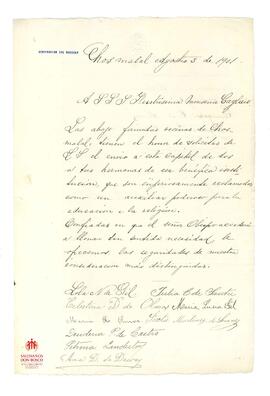 GOBERNACION DEL NEUQUEN
Chos malal Agosto 5 de 1901
A S S S Ilustrísima Monseñor Cagliero
Las abajo firmadas vecinas de Chos
malal, tienen el honor de solicitar de
S S el envio a esta capital de dos
o tres hermanas de esa benéfica insti
tucion, que son imperiosamente reclamadas
como un auxiliar poderoso para la
educacion i la religion.
Confiadas en que el señor Obispo accederá
a llenar tan sentida necesidad le
ofrecemos las seguridades de nuestra
consideracion mas distinguida.
Lola N de Gil Julia C de
Celestina D. de Olmos Maria Luisa Gil
Maria
P. de Castro
de
SALESIANOS
DON BOSCO